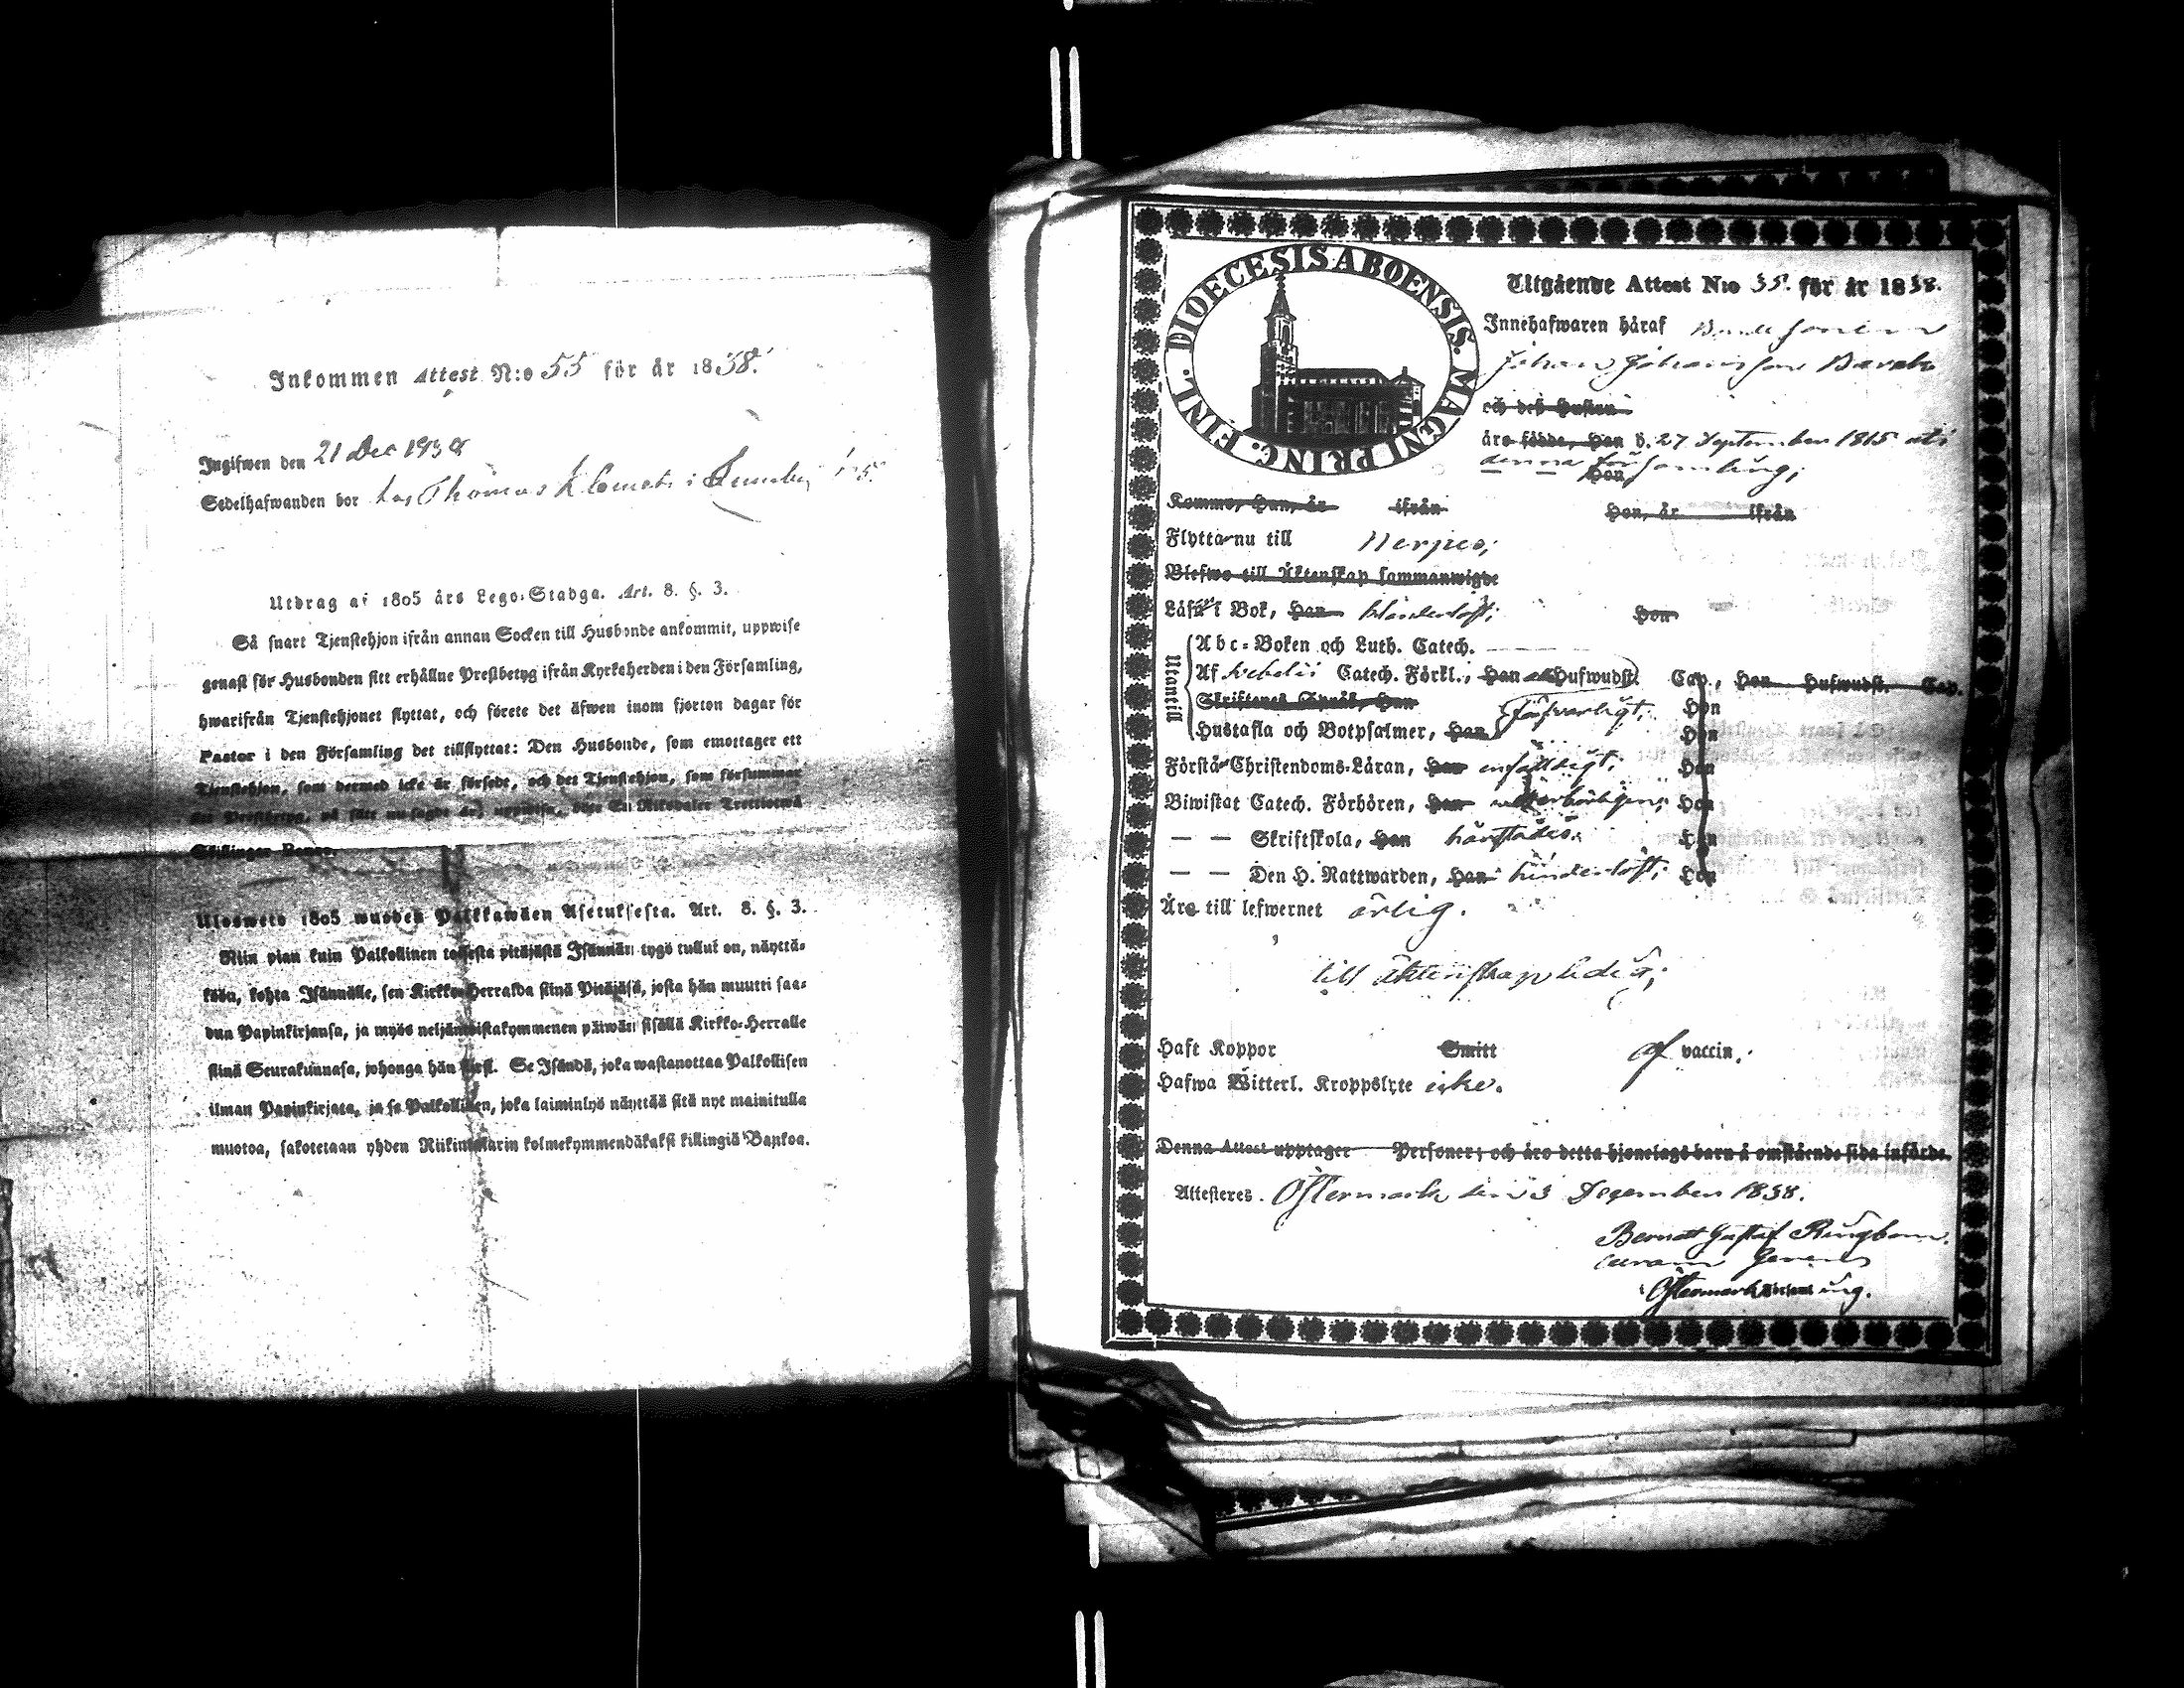 Inkommen Attest N:o 55 för år 1838.
Ingifwen den 21 Dec 1838
Sedelhafwanden bor hos Thomas Klemets i
Utdrag af 1805 års Lego-Stadga. Art. 8. §. 3.
Så snart Tjenstehjon ifrån annan Socken till Husbonde ankommit, uppwise
genast för Husbonden sitt erhållne Prestbetyg ifrån Kyrkoherden i den Församling,
hwarifrån Tjenstehjonet flyttat, och förete det äfwen inom fjorton dagar för
Pastor i den Församling det tillflyttat: Den Husbonde, som emottager ett
Tjenstehjon, som dermed icke är försedt, och det Tjenstehjon, som försummar
Prestbetyg, på sätt nu sagdt är, uppwisa, böte En Riksdaler Trettiotwå
Skillingar Banco.
Ulosweto 1805 wuoden Palkkawäen Asetuksesta. Art. 8. §. 3.
Niin pian kuin Palkollinen toisesta pitäjästä Isännän tygö tullut on, näyttä-
köön, kohta Isännälle, sen Kirkko-Herralda siinä Pitäjäsä, josta hän muutti saa-
dun Papinkirjansa, ja myös neljäntoistakymmenen päiwän sisällä Kirkko-Herralle
siinä Seurakunnasa, johonga hän siirsi. Se Isändä, joka wastanottaa Palkollisen
ilman Papinkirjata, ja se Palkollinen, joka laiminlyö näyttää sitä nyt mainitulla
muotoa, sakotetaan yhden Riikintalarin kolmekymmendäkaksi killingiä Bankoa.
DIOECESIS ABOENSIS. MAGNI PRINC. FINL.
Utgående Attest N:o 35. för år 1838.
Innehafwaren häraf Bondesonen
Johan Johansson
och deß Hustru
äro födde, Han d. 27 September 1815 uti
denna församling; Hon
Komme, Han, år ifrån Hon, år ifrån
Flytta nu till Nerpes;
Blefwo till Äktenskap sammanwigde
Läsa i Bok, Han Hon
Utantill
Abc-Boken och Luth. Catech.
Af Catech. Förkl., Han Hufwudst. Cap., Hon Hufwudst. Cap.
Skriftenes Språk, Han försvarligt, Hon
Hustafla och Botpsalmer, Han Hon
Förstå Christendoms-Läran, Han enfäldigt; Hon
Biwistat Catech. Förhören, Han Hon
— — Skriftskola, Han härstädes. Hon
— — Den H. Nattwarden, Han Hon
Äro till lefwernet ärlig.
till äktenskap ledig;
Haft Koppor Smitt af vaccin.
Hafwa Witterl. Kroppslyte icke.
Denna Attest upptager Personer; och äro detta hjonelags barn å omstående sida införde.
Attesteras. Östermark den 3 December 1838.
Berndt Gustaf Ringbom.
curam gerens